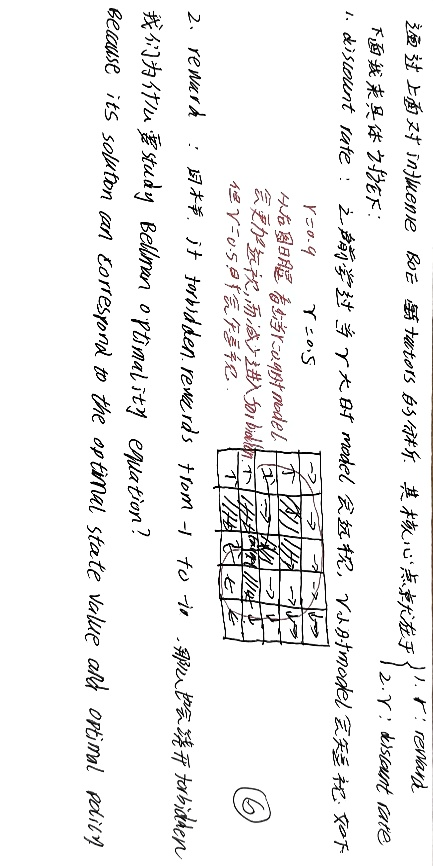 通过上面对 influence BOE 重 factors 的分析 其核心点就在于 { 1. r : reward
2. γ : discount rate
下面我来具体分析下:
1. discount rate : 之前学过当 γ 大时 model 会远视, γ 小时 model 会短视. 如下
γ=0.9 γ=0.5
会更加短视, 而减少进入 forbidden
但 γ=0.5 时会
2. reward : 同样 if forbidden rewards from -1 to -10, 那么也会绕开 forbidden
我们为什么要 study Bellman optimality equation?
Because its solution can correspond to the optimal state value and optimal policy
⑥